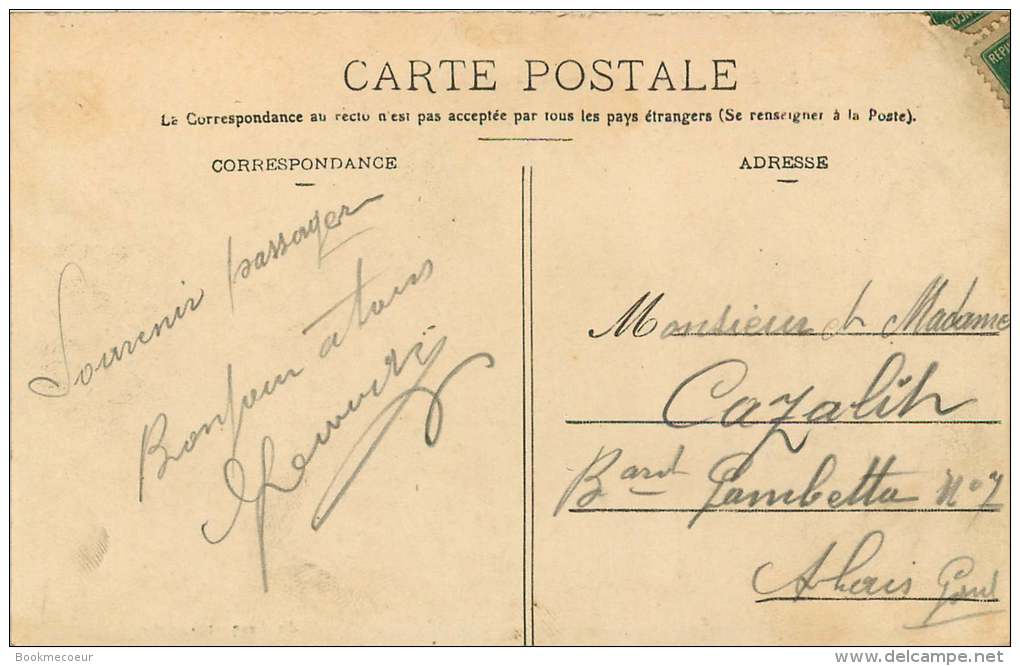 CARTE POSTALE
La Correspondance au recto n'est pas acceptée par tous les pays étrangers (Se renseigner à la Poste).
CORRESPONDANCE
Souvenir passager
Bonjour a tous
ADRESSE
Monsieur et Madame
Cazalih
Bard Gambetta No 7
Alais Gard
REPU
Bookmecoeur
www.delcampe.net